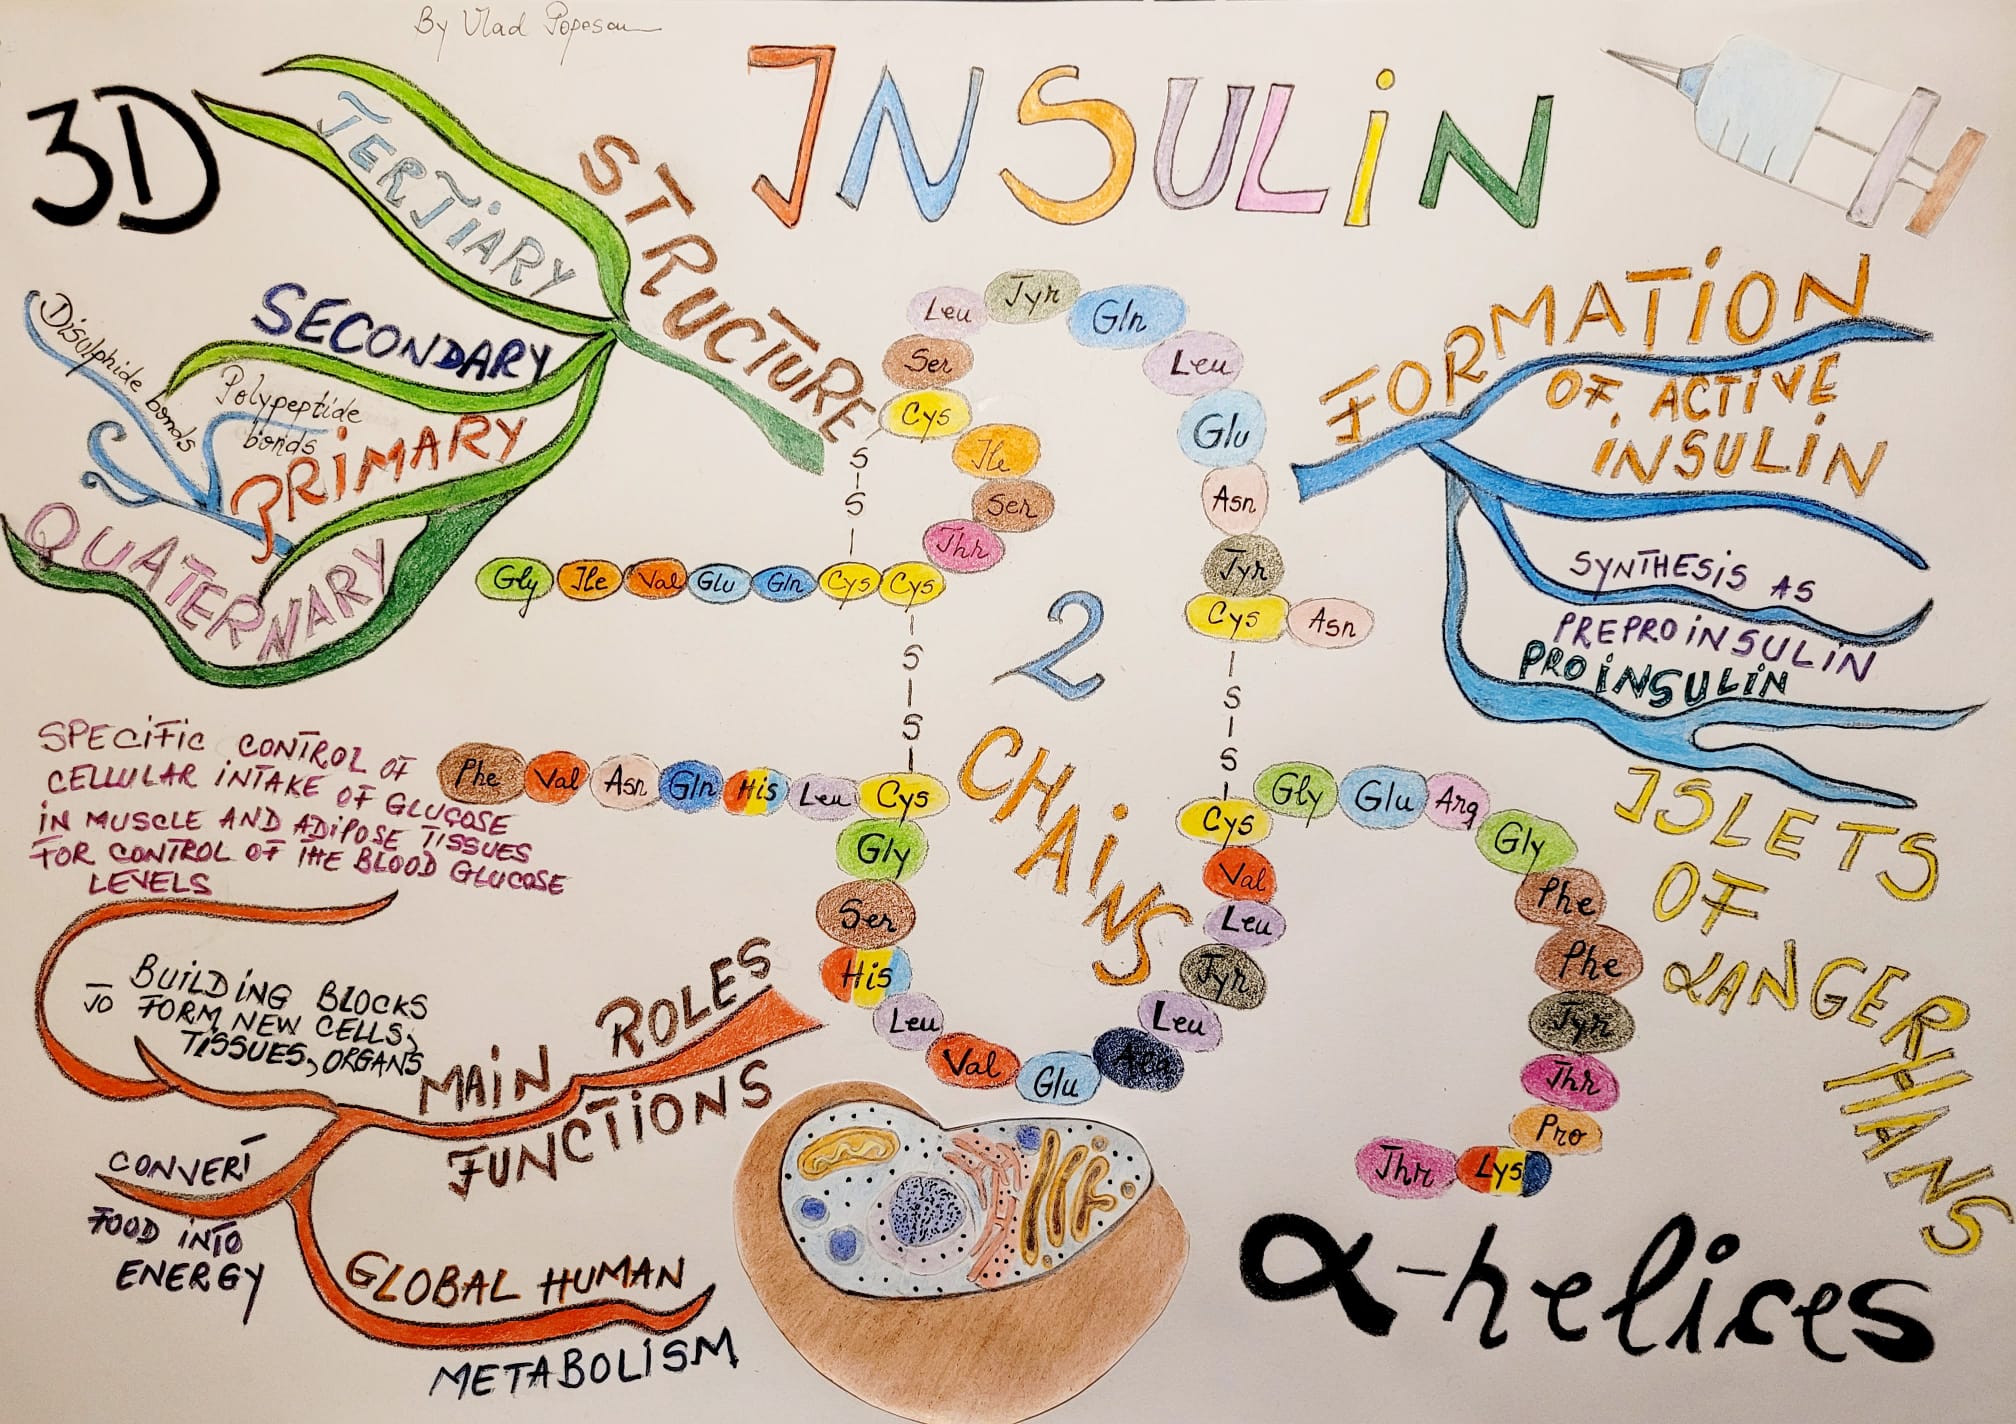 By Vlad Popescu
INSULiN
3D
STRUCTURE
TERTIARY
SECONDARY
Disulphide bonds
Polypeptide
bonds
PRiMARY
QUATERNARY
FORMATiON
OF ACTIVE
iNSULiN
SYNTHESIS AS
PREPROiNSULiN
PROiNSULiN
ISLETS
OF
LANGERHANS
Leu Tyr Gln
Ser Leu
Cys Glu
Ile Asn
Ser Tyr
Thr Cys Asn
S
S
Gly Ile Val Glu Gln Cys Cys
S
S
S
S
2
CHAiNS
Phe Val Asn Gln His Leu Cys
Gly
Ser
His
Leu
Val Glu Ala Leu
Tyr
Leu
Val
Cys Gly Glu Arg Gly
Phe
Phe
Tyr
Thr
Pro
Thr Lys
SPECiFiC CONTROL OF
CELLULAR iNTAKE OF GLUCOSE
iN MUSCLE AND ADiPOSE TISSUES
FOR CONTROL OF THE BLOOD GLUCOSE
LEVELS
MAiN ROLES
FUNCTiONS
BUiLDiNG BLOCKS
TO FORM NEW CELLS,
TiSSUES, ORGANS
CONVERT
FOOD iNTO
ENERGY
GLOBAL HUMAN
METABOLiSM
α-helices